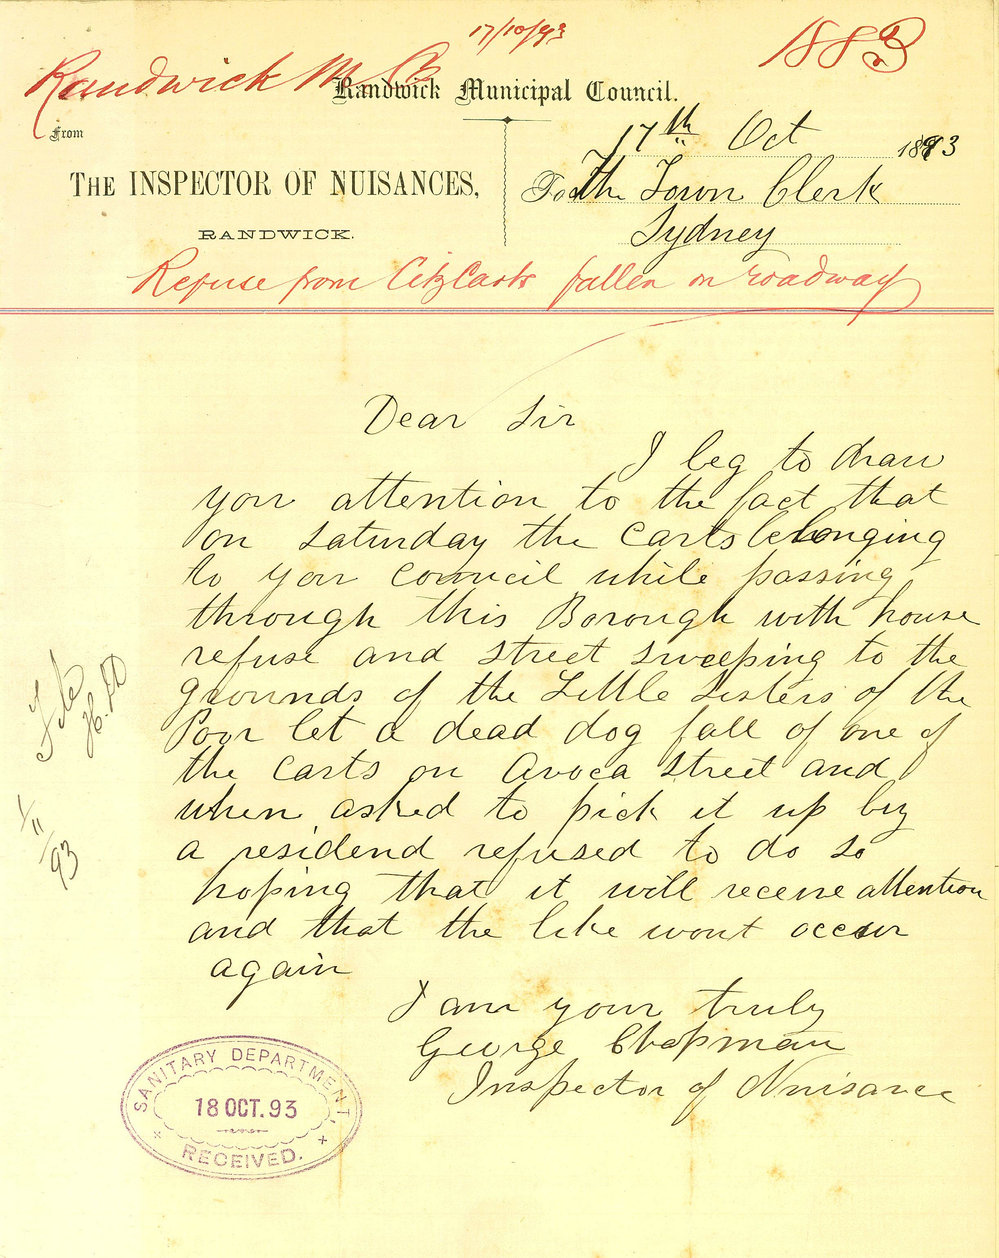 17/10/93
1883
Randwick M. C.
Randwick Municipal Council.
From
17th Oct 1893
THE INSPECTOR OF NUISANCES,
To The Town Clerk
RANDWICK.
Sydney
Refuse from City Carts fallen on roadway
Dear Sir
I beg to draw
your attention to the fact that
on Saturday the carts belonging
to your council while passing
through this Borough with house
refuse and street sweeping to the
grounds of the Little Sisters of the
Poor let a dead dog fall of one of
the carts on Avoca street and
when asked to pick it up by
a residend refused to do so
hoping that it will receive attention
and that the like wont occur
again
I am your truly
George Chapman
Inspector of Nuisance
File
1/11/93
SANITARY DEPARTMENT,
18 OCT. 93
RECEIVED.